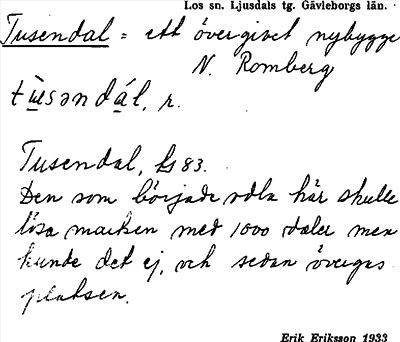 Los sn. Ljusdals tg. Gävleborgs län.
Tusendal = ett övergivet nybygge
N. Romberg
tùsəndál, r.
Tusendal, ks 83.
Den som började odla här skulle
lösa marken med 1000 daler men
kunde det ej, och sedan övergavs
platsen.
Erik Eriksson 1933